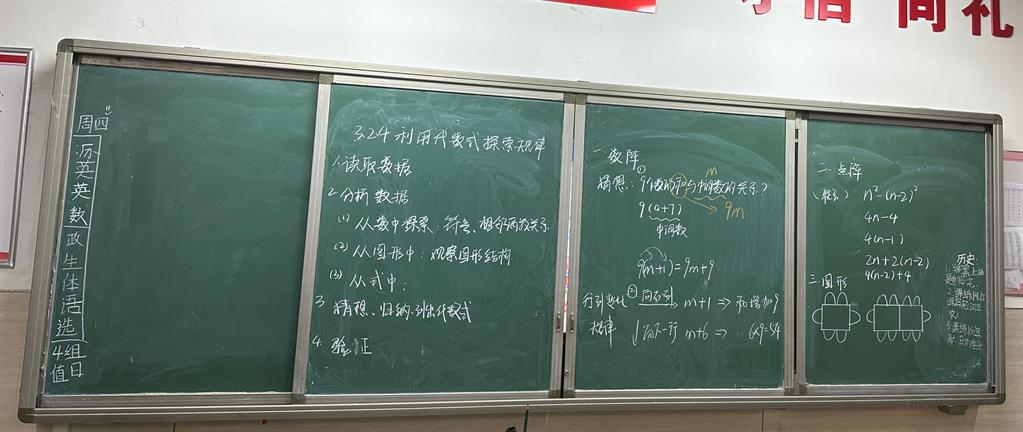 简礼
周四
历
英
英
数
政
生
体
语
选
4组
值日
3.2.4 利用代数式探索规律
1. 读取数据
2. 分析数据
(1) 从数中探索：符号、相邻两数关系
(2) 从图形中：观察图形结构
(3) 从式中：
3. 猜想、归纳、列出代数式
4. 验证
一. 数阵
①
m
猜想：9个数的和与中间数的关系？
9(a+7)
9m
中间数
9(m+1)=9m+9
② 向右一列 m+1 ⇒ 和增加9
规律
↓向下一行 m+6 ⇒
二. 点阵
n²-(n-2)²
4n-4
4(n-1)
2n+2(n-2)
4(n-2)+4
三. 图形
历史